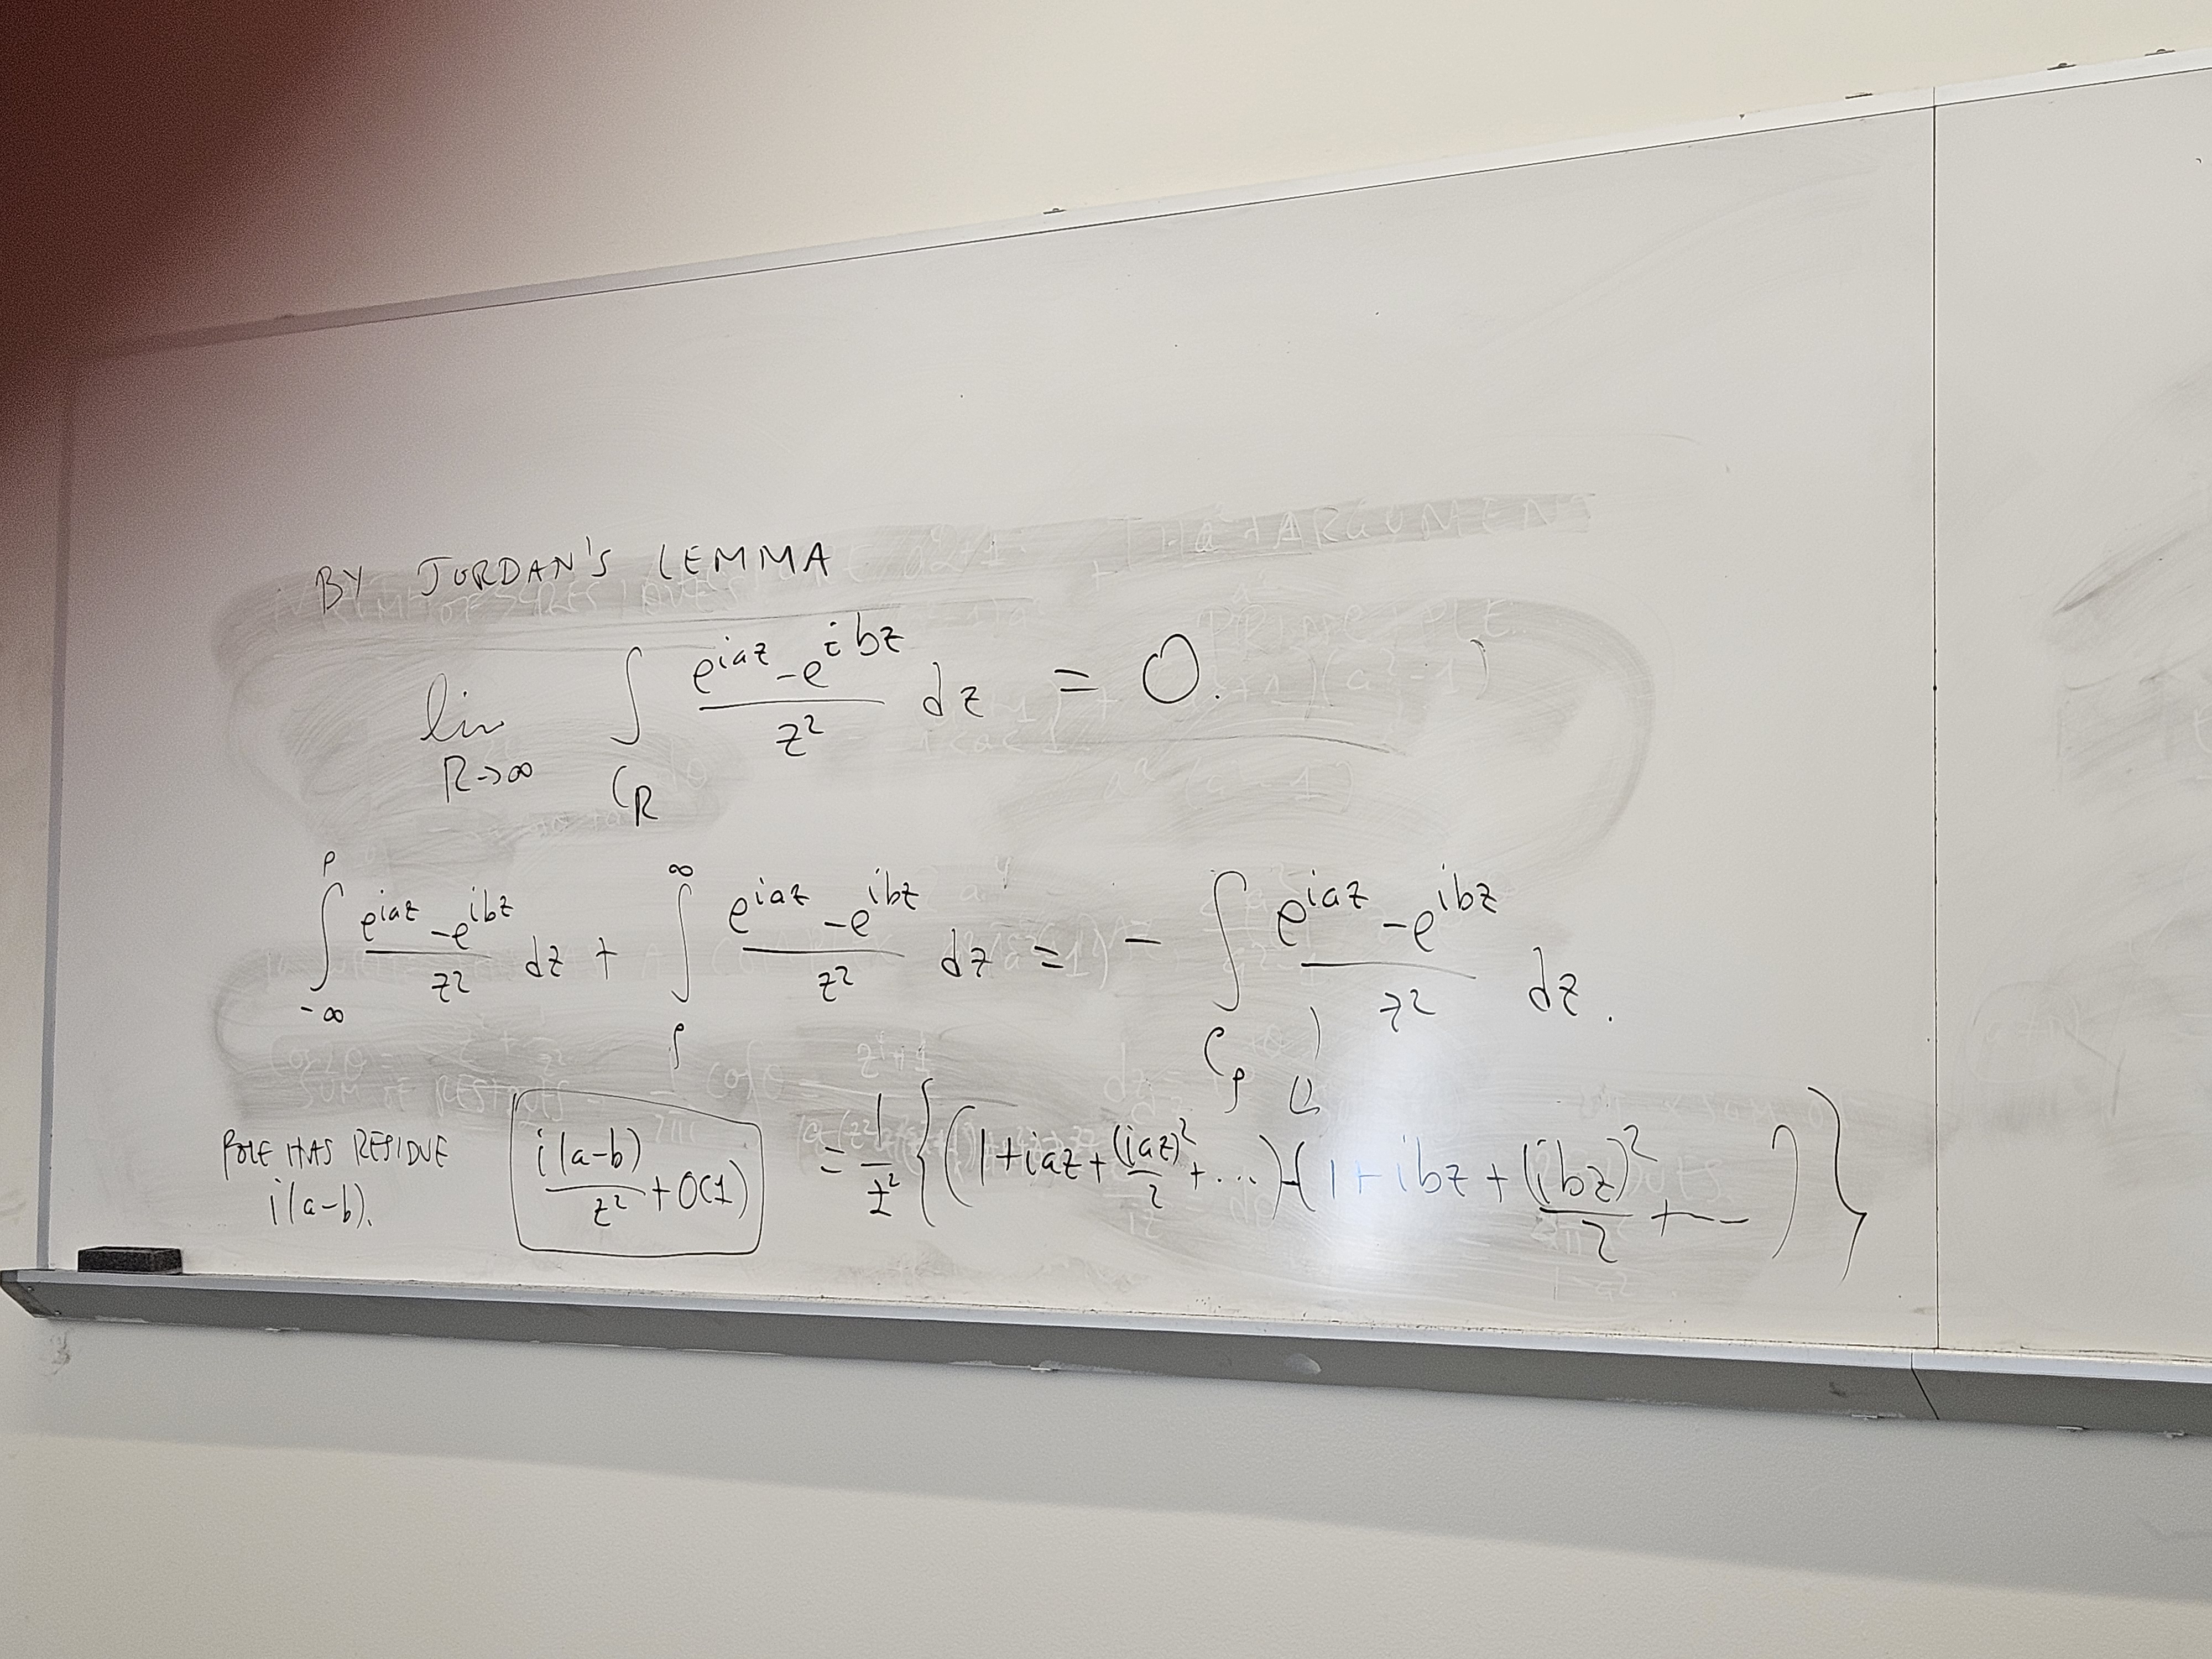 BY JORDAN'S LEMMA
lim_{R→∞} ∫_{C_R} (e^{iaz} - e^{ibz})/z² dz = 0.
∫_{-∞}^{ρ} (e^{iaz} - e^{ibz})/z² dz + ∫_{ρ}^{∞} (e^{iaz} - e^{ibz})/z² dz = - ∫_{C_ρ} (e^{iaz} - e^{ibz})/z² dz.
POLE HAS RESIDUE
i(a-b).
i(a-b)/z² + O(1) = 1/z² {(1 + iaz + (iaz)²/2 + ...) - (1 + ibz + (ibz)²/2 + ...)}